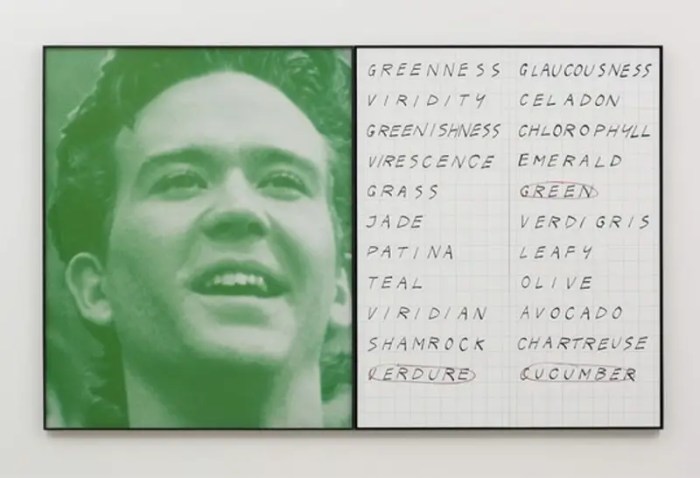 GREENNESS GLAUCOUSNESS
VIRIDITY CELADON
GREENISHNESS CHLOROPHYLL
VIRESCENCE EMERALD
GRASS GREEN
JADE VERDIGRIS
PATINA LEAFY
TEAL OLIVE
VIRIDIAN AVOCADO
SHAMROCK CHARTREUSE
VERDURE CUCUMBER